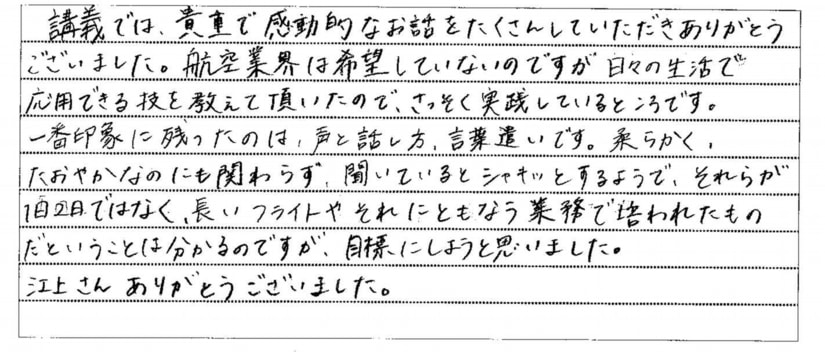 講義では、貴重で感動的なお話をたくさんしていただきありがとう
ございました。航空業界は希望していないのですが日々の生活で
応用できる技を教えて頂いたので、さっそく実践しているところです。
一番印象に残ったのは、声と話し方、言葉遣いです。柔らかく、
たおやかなのにも関わらず、聞いているとシャキッとするようで、それらが
1日2日ではなく、長いフライトやそれにともなう業務で培われたもの
だということは分かるのですが、目標にしようと思いました。
江上さんありがとうございました。